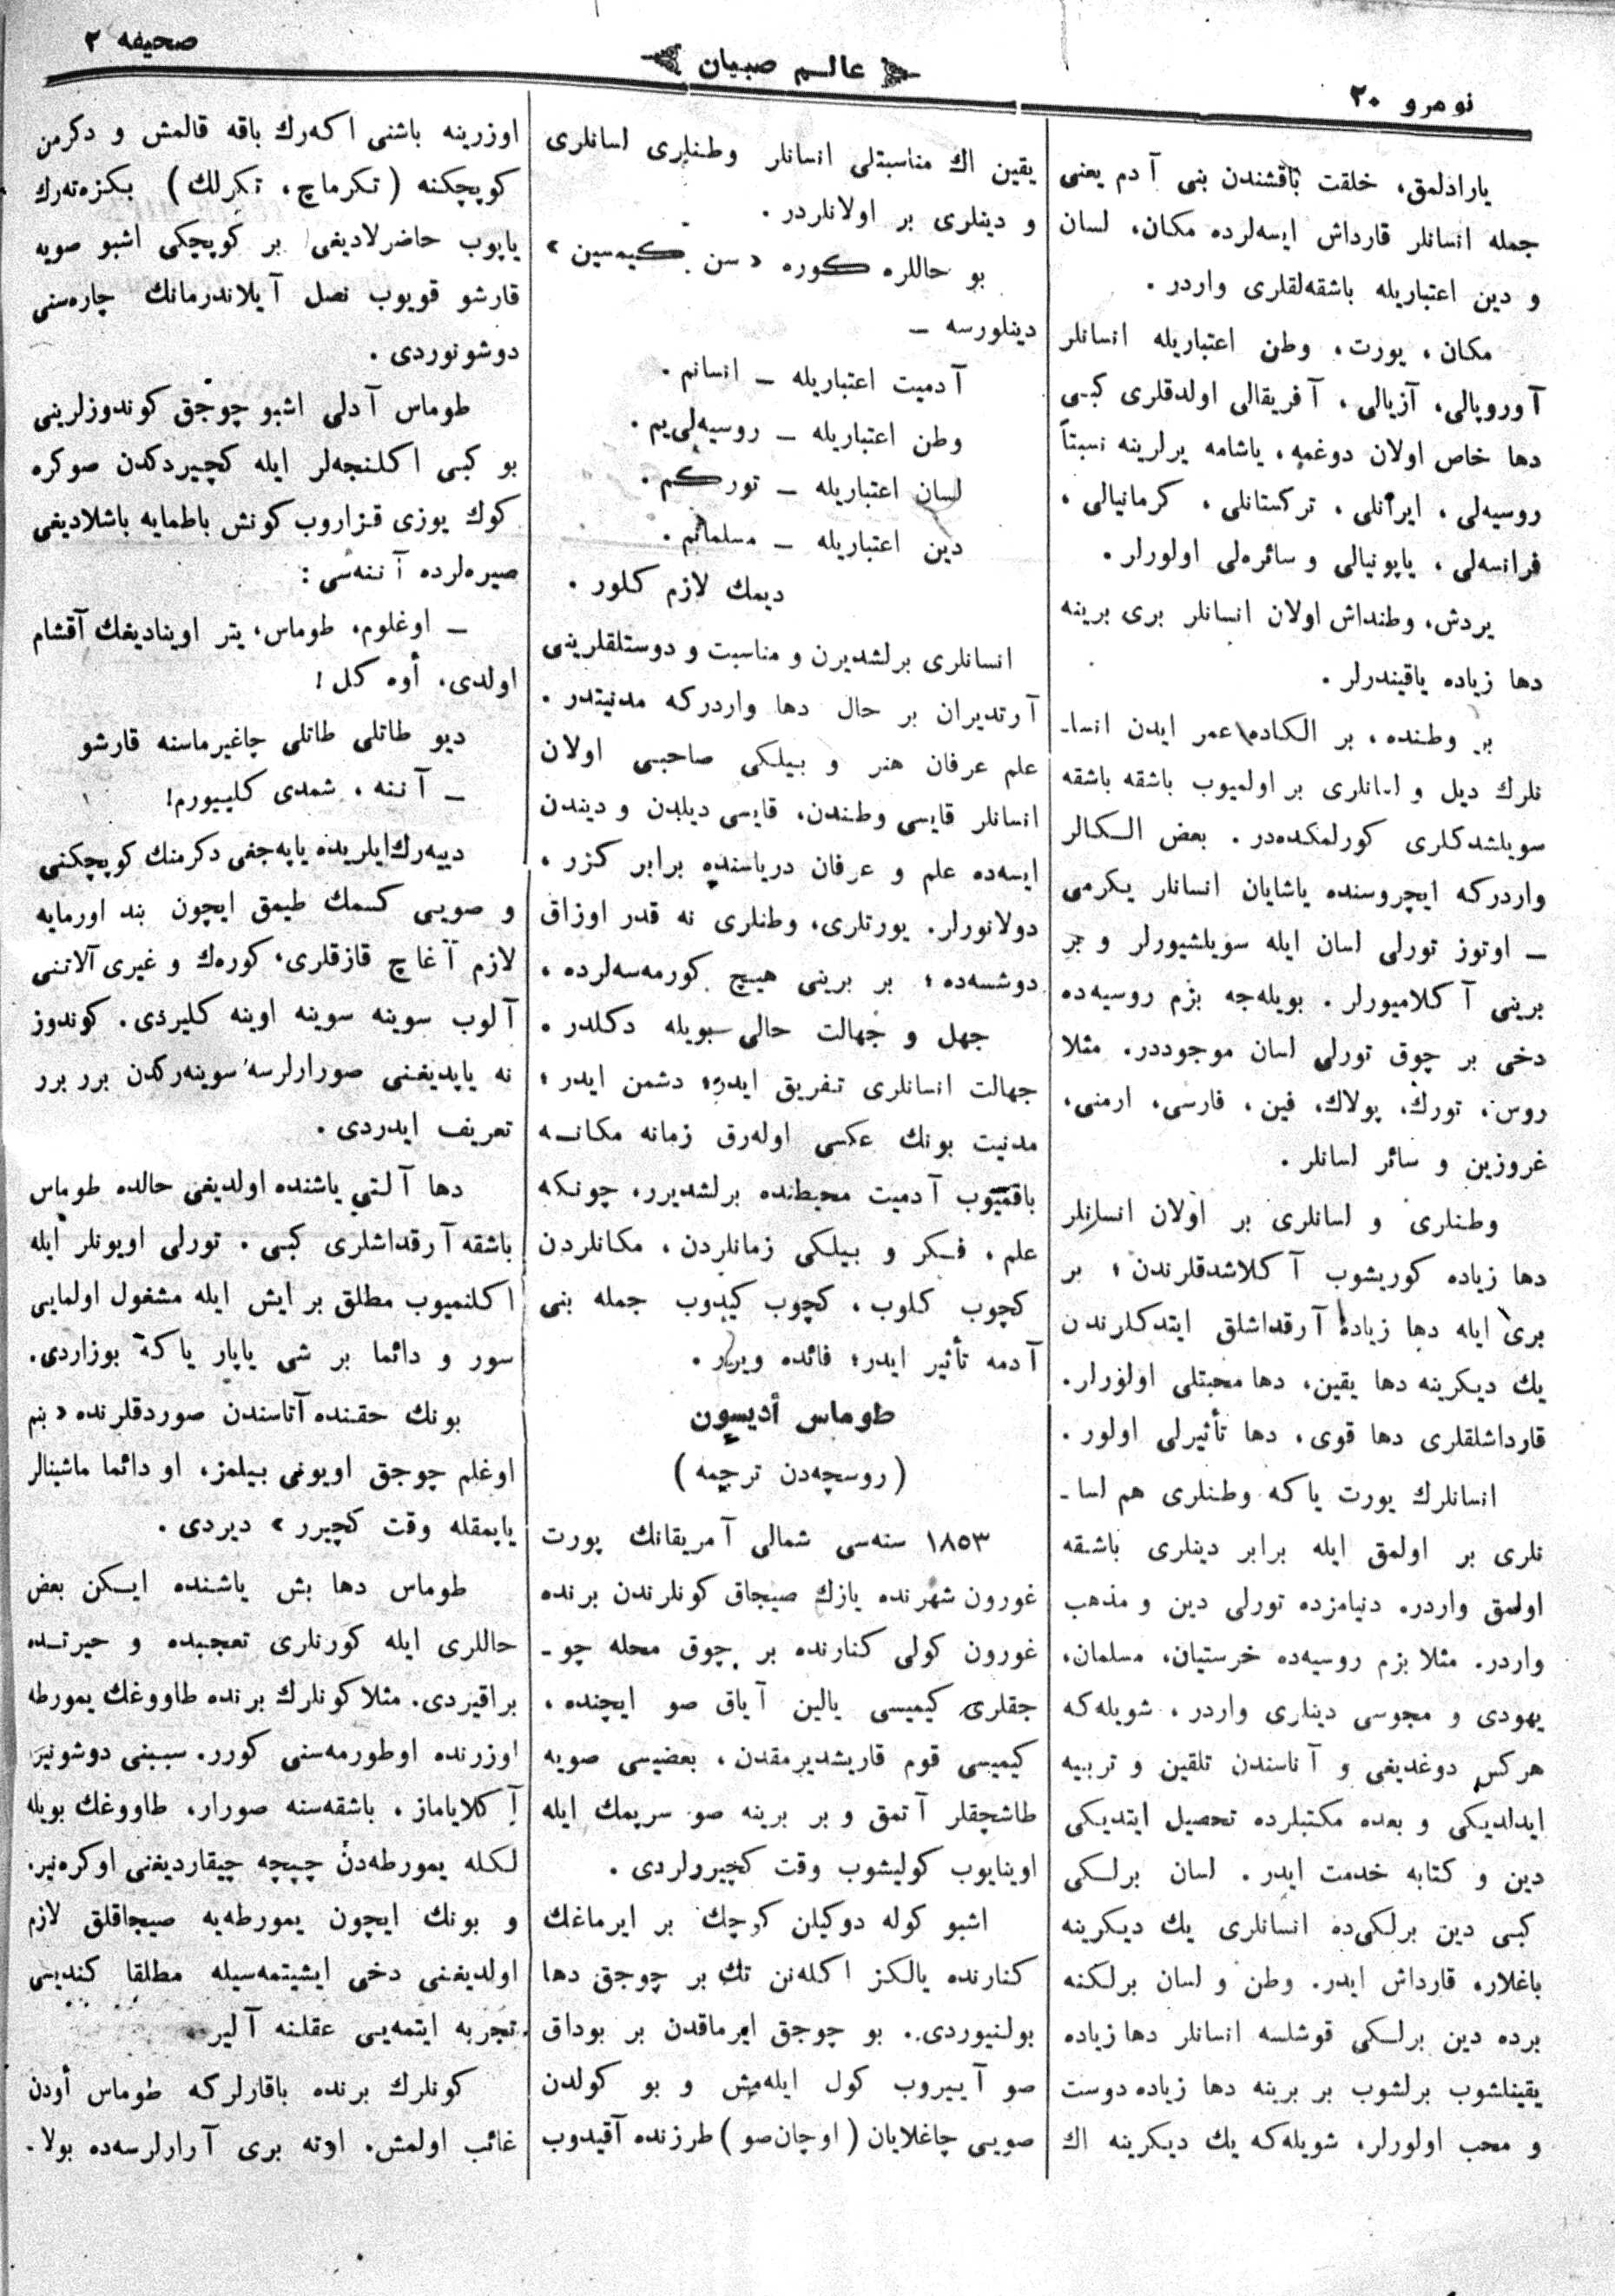 نومرو ۲۰
عالم صبیان
صحیفه ۲
یارادلمق، خلقت باقشندن بنی آدم یعنی
جمله انسانلر قارداش ایسه‌لرده مکان، لسان
و دین اعتباریله باشقه‌لقلری واردر .
مکان، یورت، وطن اعتباریله انسانلر
آوروپالی، آزیالی، آفریقالی اولدقلری کبی
دها خاص اولان دوغمه، یاشامه یرلرینه نسبتاً
روسیه‌لی، ایرانلی، ترکستانلی، کرمانیالی،
فرانسه‌لی، یاپونیالی و سائره‌لی اولورلر .
یردش، وطنداش اولان انسانلر بری برینه
دها زیاده یاقیندرلر .
بر وطنده، بر الکاده عمر ایدن انسا-
نلرك دیل و لسانلری بر اولمیوب باشقه باشقه
سویلشدکلری کورلمکده‌در . بعض الکالر
واردرکه ایچروسنده یاشایان انسانلر یکرمی
– اوتوز تورلی لسان ایله سویلشیورلر و بر
برینی آکلامیورلر . بویله‌جه بزم روسیه‌ده
دخی بر چوق تورلی لسان موجوددر. مثلا
روس، تورك، پولاك، فین، فارسی، ارمنی،
غروزین و سائر لسانلر .
وطنلری و لسانلری بر اولان انسانلر
دها زیاده کوریشوب آکلاشدقلرندن ؛ بر
بری ایله دها زیاده آرقداشلق ایتدکلرندن
یك دیکرینه دها یقین، دها محبتلی اولورلر.
قارداشلقلری دها قوی، دها تأثیرلی اولور .
انسانلرك یورت یاکه وطنلری هم لسا-
نلری بر اولمق ایله برابر دینلری باشقه
اولمق واردر. دنیامزده تورلی دین و مذهب
واردر. مثلا بزم روسیه‌ده خرستیان، مسلمان،
یهودی و مجوسی دینلری واردر، شویله‌که
هرکس دوغدیغی و آناسندن تلقین و تربیه
ایدلدیکی و بعده مکتبلرده تحصیل ایتدیکی
دین و کتابه خدمت ایدر . لسان برلکی
کبی دین برلکی‌ده انسانلری یك دیکرینه
باغلار، قارداش ایدر. وطن و لسان برلکنه
برده دین برلکی قوشلسه انسانلر دها زیاده
یقینلشوب برلشوب بر برینه دها زیاده دوست
و محب اولورلر، شویله‌که یك دیکرینه اك
یقین اك مناسبتلی انسانلر وطنلری لسانلری
و دینلری بر اولانلردر .
بو حاللره کوره « سن کیمسین »
دینلورسه –
آدمیت اعتباریله – انسانم .
وطن اعتباریله – روسیه‌لی‌یم .
لسان اعتباریله – تورکم .
دین اعتباریله – مسلمانم .
دیمك لازم کلور .
انسانلری برلشدیرن و مناسبت و دوستلقلرینی
آرتدیران بر حال دها واردرکه مدنیتدر .
علم عرفان هنر و بیلکی صاحبی اولان
انسانلر قایسی وطندن، قایسی دیلدن و دیندن
ایسه‌ده علم و عرفان دریاسنده برابر کزر،
دولانورلر. یورتلری، وطنلری نه قدر اوزاق
دوشسه‌ده ؛ بر برینی هیچ کورمه‌سه‌لرده .
جهل و جهالت حالی بویله دکلدر .
جهالت انسانلری تفریق ایدر؛ دشمن ایدر ؛
مدنیت بونك عکسی اوله‌رق زمانه مکانه
باقمیوب آدمیت محیطنده برلشدیرر، چونکه
علم، فکر و بیلکی زمانلردن، مکانلردن
کچوب کلوب، کچوب کیدوب جمله بنی
آدمه تأثیر ایدر؛ فائده ویرر .
طوماس أدیسون
(روسچه‌دن ترجمه)
۱۸۵۳ سنه‌سی شمالی آمریقانك پورت
غورون شهرنده یازك صیجاق کونلرندن برنده
غورون کولی کنارنده بر چوق محله چو-
جقلری کیمیسی یالین آیاق صو ایچنده،
کیمیسی قوم قاریشدیرمقدن، بعضیسی صویه
طاشچقلر آتمق و بر برینه صو سریمك ایله
اوینایوب کولیشوب وقت کچیررلردی .
اشبو کوله دوکیلن کوچك بر ایرماغك
کنارنده یالکز اکله‌نن تك بر چوجق دها
بولنیوردی. بو چوجق ایرماقدن بر بوداق
صو آییروب کول ایله‌مش و بو کولدن
صویی چاغلایان (اوچان‌صو) طرزنده آقیدوب
اوزرینه باشنی اکه‌رك باقه قالمش و دکرمن
کوپچکنه (تکرماچ، تکرلك) بکزه‌ته‌رك
یاپوب حاضرلادیغی بر کوپچکی اشبو صویه
قارشو قویوب نصل آیلاندرمانك چاره‌سنی
دوشونوردی .
طوماس آدلی اشبو چوجق کوندوزلرینی
بو کبی اکلنجه‌لر ایله کچیردکدن صوکره
کوك یوزی قزاروب کونش باطمایه باشلادیغی
صیره‌لرده آننه‌سی :
– اوغلوم، طوماس، یتر اوینادیغك آقشام
اولدی، أوه کل !
دیو طاتلی طاتلی چاغیرماسنه قارشو
– آننه، شمدی کلییورم!
دییه‌رك ایلریده یاپه‌جغی دکرمنك کوپچکنی
و صویی کسمك طیمق ایچون بند اورمایه
لازم آغاچ قازقلری، کوره‌ك و غیری آلاتنی
آلوب سوینه سوینه اوینه کلیردی. کوندوز
نه یاپدیغنی صورارلرسه سوینه‌رکدن برر برر
تعریف ایدردی .
دها آلتی یاشنده اولدیغی حالده طوماس
باشقه آرقداشلری کبی . تورلی اویونلر ایله
اکلنمیوب مطلق بر ایش ایله مشغول اولمایی
سور و دائما بر شی یاپار یاکه بوزاردی.
بونك حقنده آتاسندن صوردقلرنده « بنم
اوغلم چوجق اویونی بیلمز، او دائما ماشینالر
یاپمقله وقت کچیرر » دیردی .
طوماس دها بش یاشنده ایکن بعض
حاللری ایله کورنلری تعجبده و حیرتده
براقیردی. مثلا کونلرك برنده طاووغك یمورطه
اوزرنده اوطورمه‌سنی کورر. سببنی دوشونیر
آکلایاماز، باشقه‌سنه صورار، طاووغك بویله
لکله یمورطه‌دن چپچه چیقاردیغنی اوکره‌نیر.
و بونك ایچون یمورطه‌یه صیجاقلق لازم
اولدیغنی دخی ایشیتمه‌سیله مطلقا کندیسی
تجربه ایتمه‌یی عقلنه آلیر
کونلرك برنده باقارلرکه طوماس أودن
غائب اولمش. اوته بری آرارلرسه‌ده بولا-